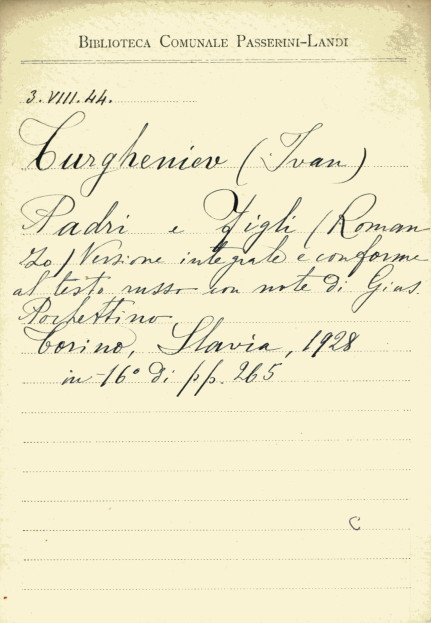 BIBLIOTECA COMUNALE PASSERINI-LANDI
3.VIII.44.
Turgheniev (Ivan)
Padri e Figli (Roman
zo) Versione integrale e conforme
al testo russo con note di Gius.
Torino, Slavia, 1928
in-16° di pp. 265
C